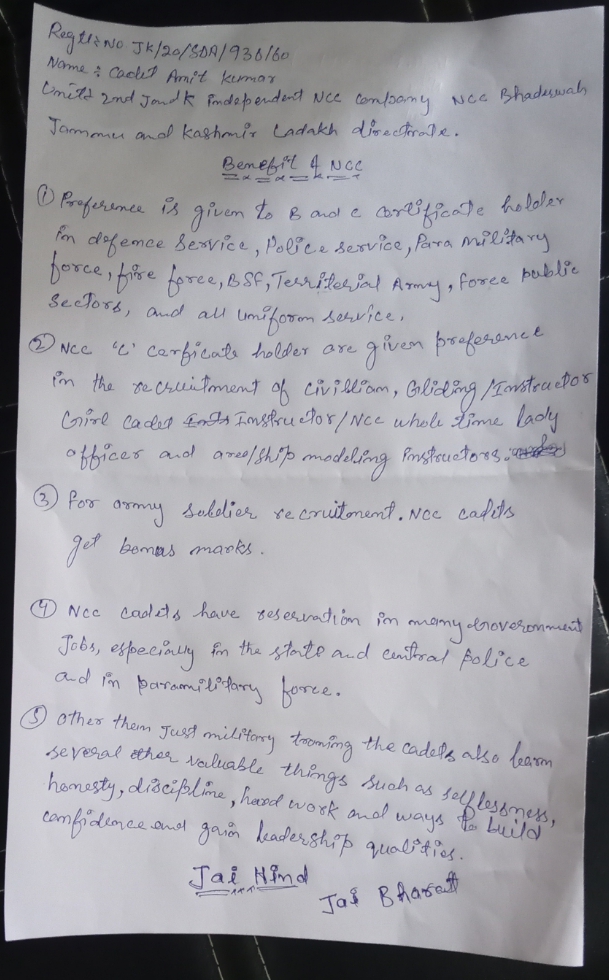 Regtl: No JK/20/SDA/936160
Name: Cadet Amit Kumar
Unit: 2nd J and K independent NCC Company NCC Bhaderwah
Jammu and Kashmir Ladakh directorate.
Benefit of NCC
① Preference is given to B and C certificate holder
in defence Service, Police service, Para military
force, fire force, BSF, Territerial Army, force public
Sectors, and all uniform service.
② NCC 'C' carficate holder are given preference
in the recruitment of civillian, Gliding/Instructor
Girl cadet Instructor/NCC whole time lady
officer and areo/ship modeling instructors.
③ for army soldier recruitment. NCC cadets
get bonus marks.
④ NCC cadets have reservation in many Government
Jobs, especially in the state and central police
and in paramilitary force.
⑤ other then Just military traning the cadets also learn
several other valuable things such as selflessness,
honesty, discipline, hard work and ways to build
confidence and gain leadership qualities.
Jai Hind
Jai Bharat